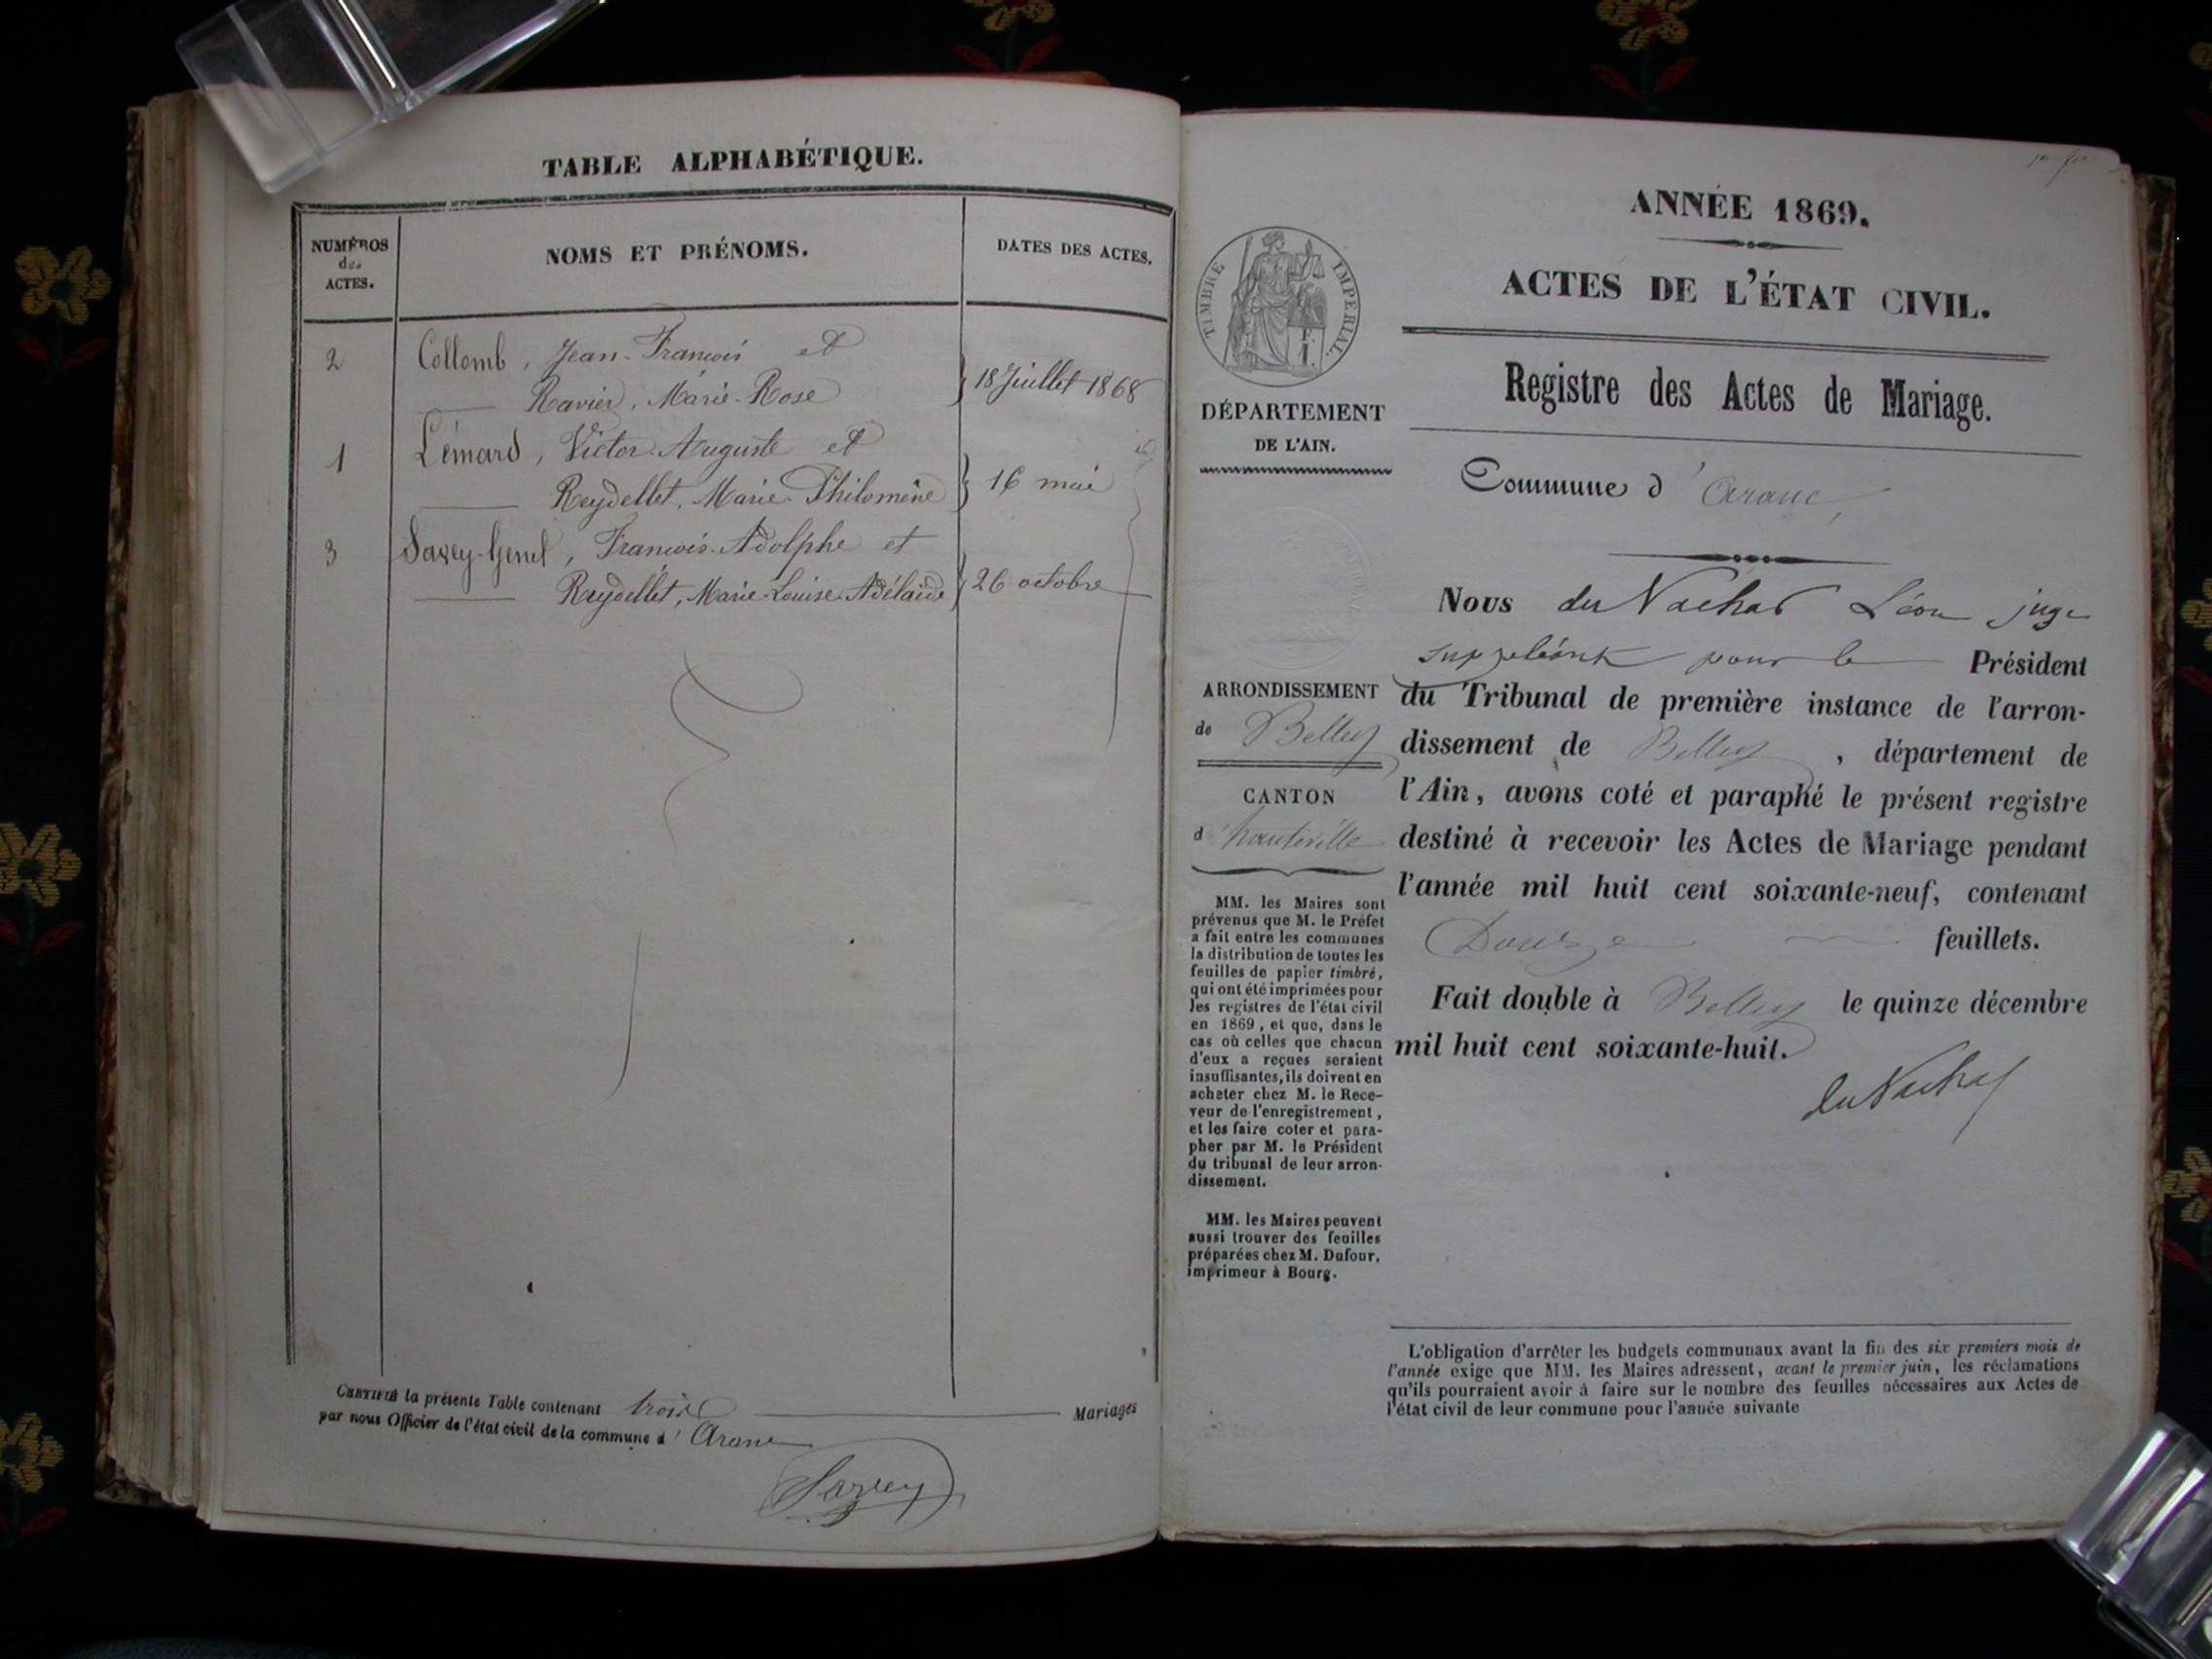 TABLE ALPHABÉTIQUE.
NUMÉROS
des
ACTES.
NOMS ET PRÉNOMS.
DATES DES ACTES.
2 Collomb, Jean-François et
Ravier, Marie-Rose } 18 Juillet 1868
1 Lémard, Victor-Auguste et
Reydellet, Marie-Philomène } 16 mai
3 Savey-Genel, François-Adolphe et
Reydellet, Marie-Louise-Adélaïde } 26 octobre
CERTIFIÉ la présente Table contenant trois Mariages
par nous Officier de l'état civil de la commune d' Aranc
Savey
ANNÉE 1869.
ACTES DE L'ÉTAT CIVIL.
Registre des Actes de Mariage.
Commune d'Aranc,
TIMBRE IMPÉRIAL.
DÉPARTEMENT
DE L'AIN.
ARRONDISSEMENT
de Belley
CANTON
d'hauteville
MM. les Maires sont
prévenus que M. le Préfet
a fait entre les communes
la distribution de toutes les
feuilles de papier timbré,
qui ont été imprimées pour
les registres de l'état civil
en 1869, et que, dans le
cas où celles que chacun
d'eux a reçues seraient
insuffisantes, ils doivent en
acheter chez M. le Rece-
veur de l'enregistrement,
et les faire coter et para-
pher par M. le Président
du tribunal de leur arron-
dissement.
MM. les Maires peuvent
aussi trouver des feuilles
préparées chez M. Dufour,
imprimeur à Bourg.
Nous du Nachat Léon juge
suppléant pour le Président
du Tribunal de première instance de l'arron-
dissement de Belley, département de
l'Ain, avons coté et paraphé le présent registre
destiné à recevoir les Actes de Mariage pendant
l'année mil huit cent soixante-neuf, contenant
Douze feuillets.
Fait double à Belley le quinze décembre
mil huit cent soixante-huit.
du Nachat
L'obligation d'arrêter les budgets communaux avant la fin des six premiers mois de
l'année exige que MM. les Maires adressent, avant le premier juin, les réclamations
qu'ils pourraient avoir à faire sur le nombre des feuilles nécessaires aux Actes de
l'état civil de leur commune pour l'année suivante